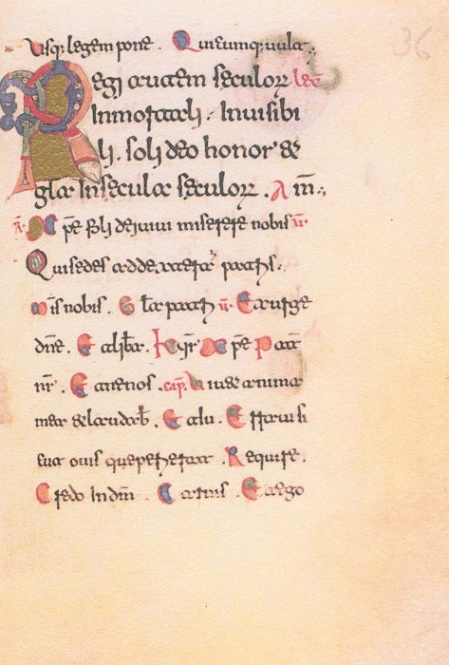 Usq; legem pone. Quicumq; uult.
Regi autem seculor lec 36
Inmortali. Inuisibi
li. soli deo honor &
gla In secula seculor. A m̄
xpe fili dei uiui miserere nobis
Qui sedes ad dexterā patris.
mis nobis. Gla patri Exurge
dn̄e. Et liƀ. Kyr. xpe Pat
nr̄. Et ne nos. cap. Uiuet anima
mea & laudaƀ. Et Erraui si
cut ouis que Require.
Credo In dm̄. Carnis. Et ego